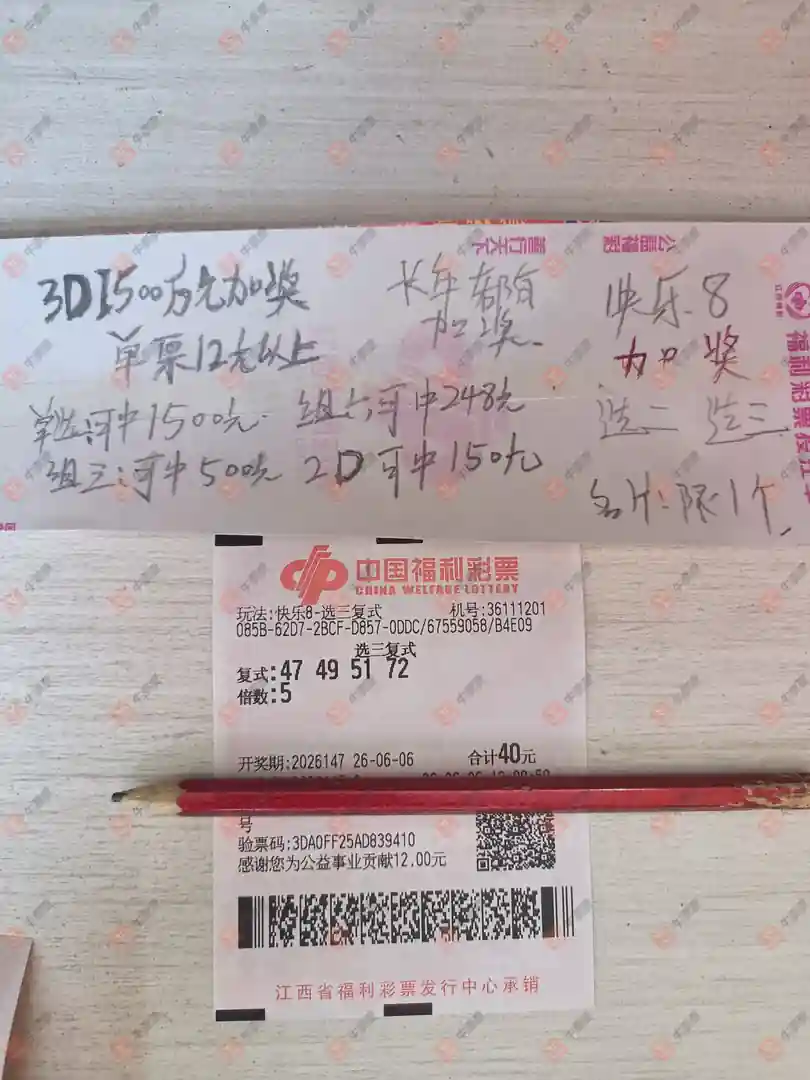 盖行天下
公益福彩
3D1500万元加奖
单票12元以上
单选:可中1500元.
组三:可中500元
长年都有
加奖.
组六可中248元
2D可中150元
快乐8
加奖
选二 选三
名片:限1个.
中国福利彩票
CHINA WELFARE LOTTERY
玩法:快乐8-选三复式 机号:36111201
085B-62D7-2BCF-D857-0DDC/67559058/B4E09
选三复式
复式:47 49 51 72
倍数:5
开奖期:2026147 26-06-06 合计40元
号
验票码:3DA0FF25AD839410
感谢您为公益事业贡献12.00元
江西省福利彩票发行中心承销